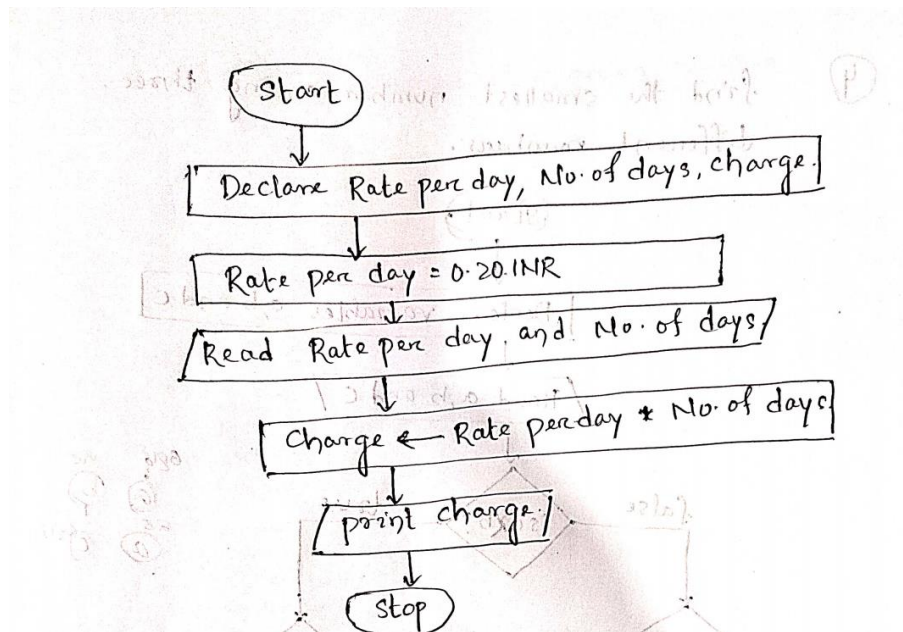 Start
Declare Rate per day, No. of days, charge.
Rate per day = 0.20.INR
Read Rate per day, and No. of days
Charge ← Rate per day * No. of days
print charge.
Stop